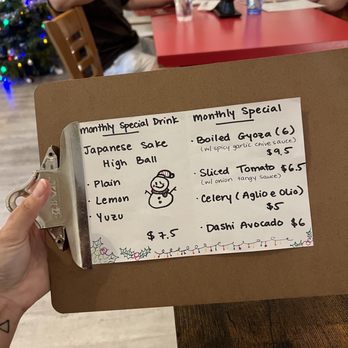 monthly Special Drink
Japanese Sake
High Ball
· Plain
· Lemon
· Yuzu
$7.5
monthly Special
· Boiled Gyoza (6)
(w/ spicy garlic chive sauce)
$9.5
· Sliced Tomato $6.5
(w/ onion tangy sauce)
· Celery (Aglio e Olio)
$5
· Dashi Avocado $6